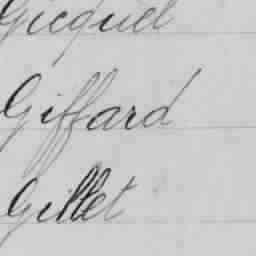 Gicquel
Giffard
Gillet